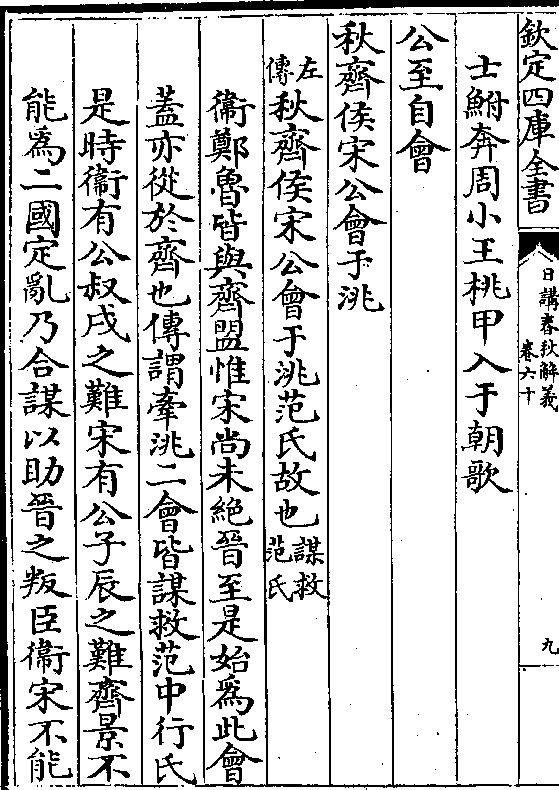 欽定四庫全書
日講春秋解義
卷六十
九
士鮒奔周小王桃甲入于朝歌
公至自會
秋齊侯宋公會于洮
左傳秋齊侯宋公會于洮范氏故也謀救范氏
衞鄭魯皆與齊盟惟宋尚未絶晉至是始爲此會
蓋亦從於齊也傳謂牽洮二會皆謀救范中行氏
是時衞有公叔戌之難宋有公子辰之難齊景不
能爲二國定亂乃合謀以助晉之叛臣衞宋不能